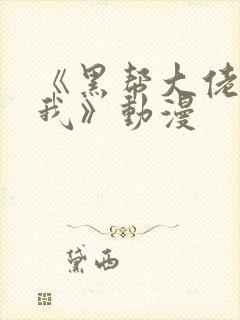 《黑帮大佬
我》動漫
黛西